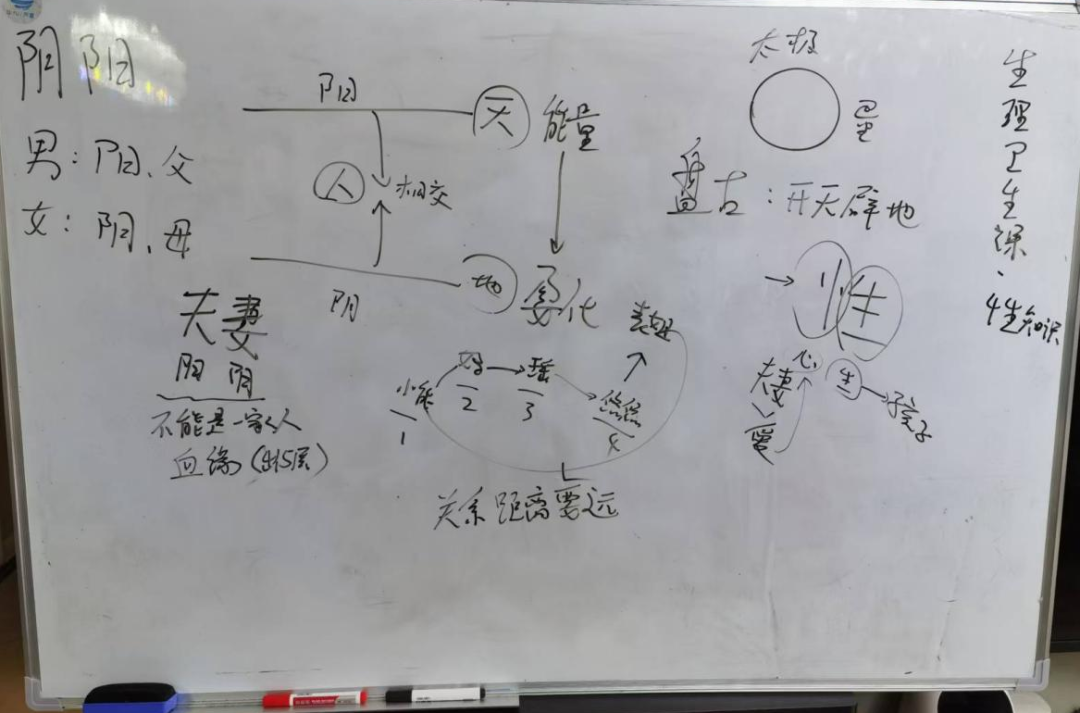 阴阳
男：阳、父
女：阴、母
夫妻
阳 阴
不能是一家人
血缘（出5层）
阳
天
能量
人
相交
地
阴
变化
小能
1
2
瑶
3
悠悠
4
关系距离要远
太极
星
盘古：开天辟地
性
夫妻
爱
心
生
孩子
生理卫生课、
性知识